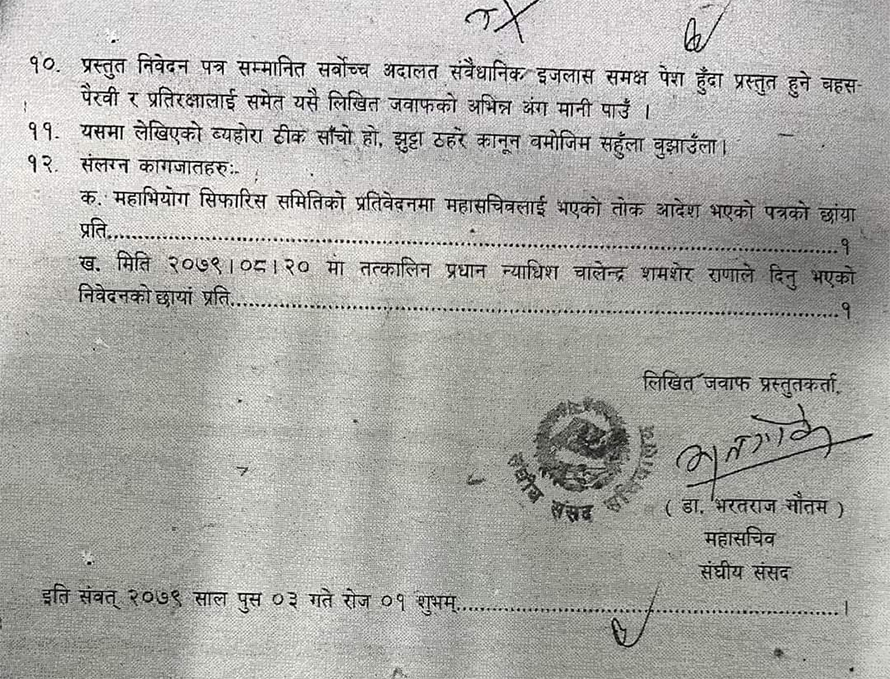 १०. प्रस्तुत निवेदन पत्र सम्मानित सर्वोच्च अदालत संवैधानिक इजलास समक्ष पेश हुँदा प्रस्तुत हुने बहस-
पैरवी र प्रतिरक्षालाई समेत यसै लिखित जवाफको अभिन्न अंग मानी पाउँ ।
११. यसमा लेखिएको व्यहोरा ठीक साँचो हो, झुट्टा ठहरे कानून बमोजिम सहुँला बुझाउँला।
१२. संलग्न कागजातहरुः-
क. महाभियोग सिफारिस समितिको प्रतिवेदनमा महासचिवलाई भएको तोक आदेश भएको पत्रको छांया
प्रति..........................................................................................१
ख. मिति २०७९।०८।२० मा तत्कालिन प्रधान न्याधिश चोलेन्द्र शमशेर राणाले दिनु भएको
निवेदनको छायां प्रति........................................................................१
लिखित जवाफ प्रस्तुतकर्ता,
संघीय संसद सचिवालय
( डा. भरतराज गौतम )
महासचिव
संघीय संसद
इति संवत् २०७९ साल पुस ०३ गते रोज ०१ शुभम्..........................................................।